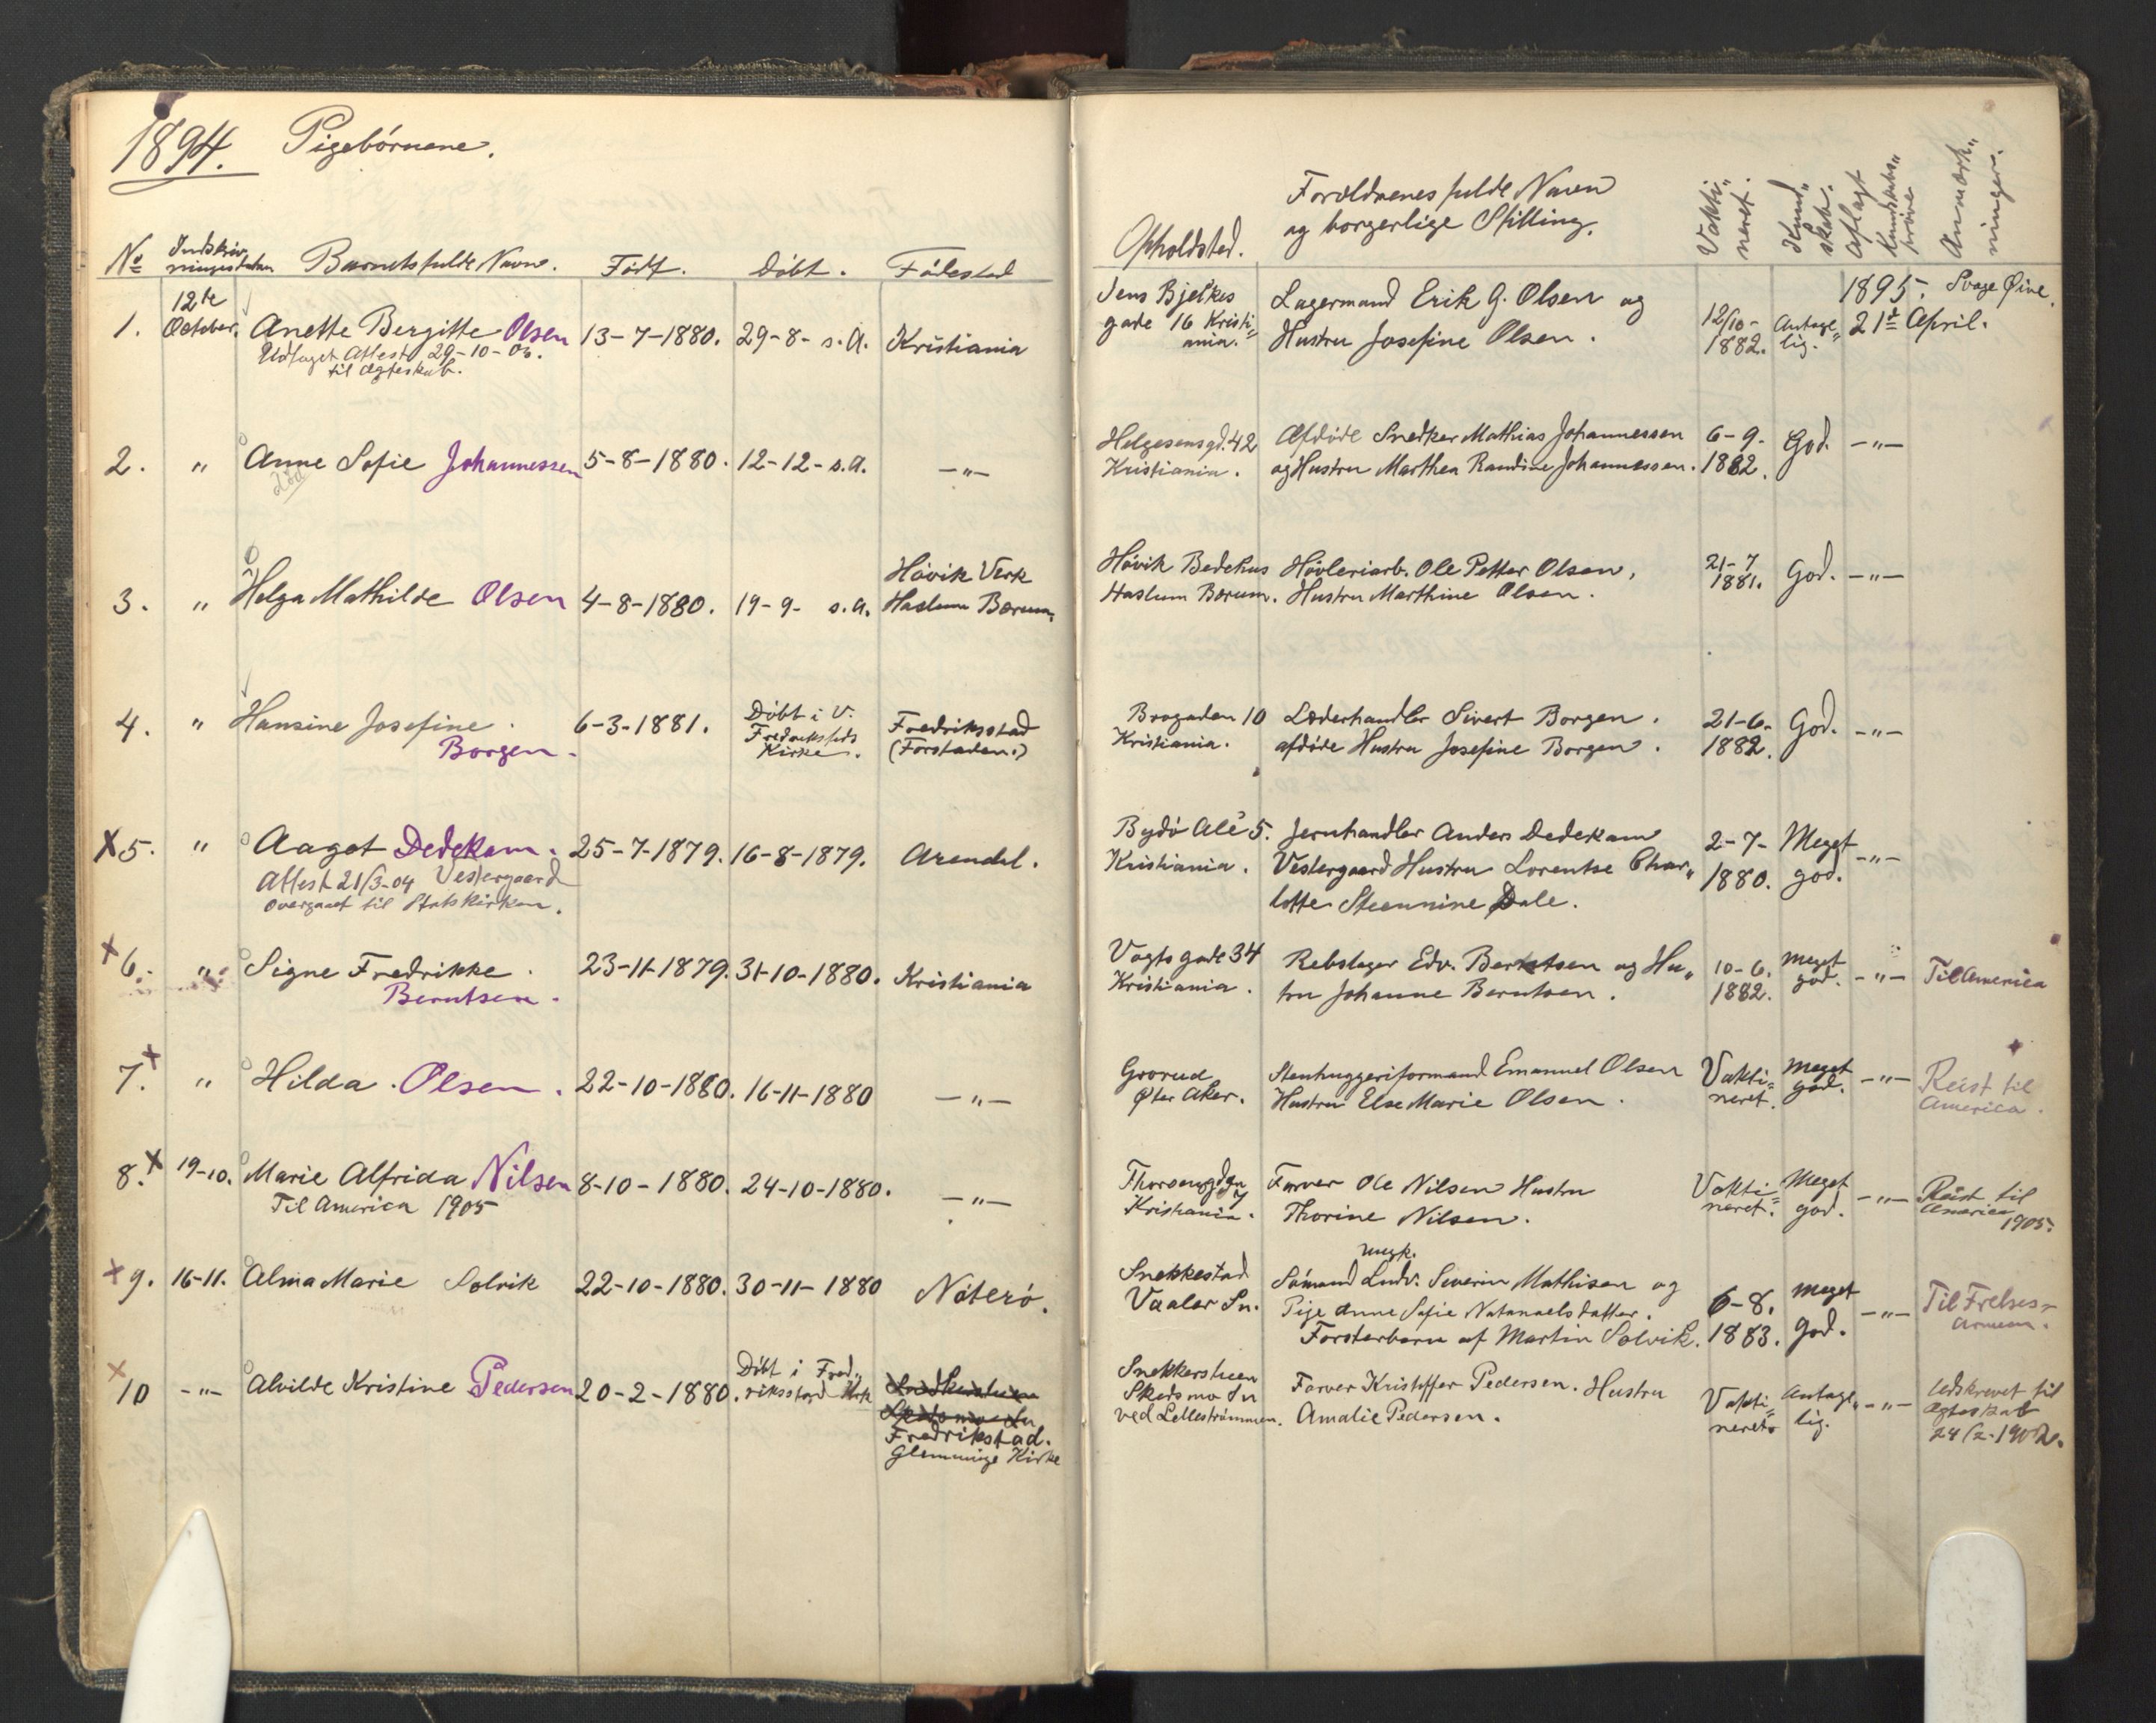 1894. Pigebørnene.
No Indskriv- ningsdatum Barnets fulde Navn. Født. Døbt. Fødested
Opholdsted. Forældrenes fulde Navn og borgerlige Stilling. Vakti- neret. Kund- skab. Aflagt Kundskabs- prøve Anmærk- ninger.
1. 12te October. Anette Bergitte Olsen 13-7-1880. 29-8- s.A. Kristiania
Udtaget Attest 29-10-
til Ægteskab.
Jens Bjelkes Lagermand Erik G. Olsen og 12/10- Antage- 1895. Svage Øine.
gade 16 Kristi- Hustru Josefine Olsen. 1882. lig. 21de April.
ania.
2. " Anne Sofie Johannessen 5-8-1880. 12-12-s.A. -"-
død
Helgesensgd. 42 Afdøde Snedker Mathias Johannessen 6-9- God. -"-
Kristiania. og Hustru Marthea Randine Johannessen. 1882.
3. " Helga Mathilde Olsen 4-8-1880. 19-9- s.A. Høvik Verk
Haslum Bærum.
Høvik Bedehus Høvleriarb. Ole Petter Olsen, 21-7 God. -"-
Haslum Bærum. Hustru Marthine Olsen. 1881.
4. " Hansine Josefine 6-3-1881. Døbt i V. Fredriksstad
Borgen. Fredriksstads (Forstaden.)
Kirke.
Brogaden 10 Læderhandler Sivert Borgen. 21-6- God. -"-
Kristiania. afdøde Hustru Josefine Borgen. 1882.
X 5. " Aagot Dedekam. 25-7-1879. 16-8-1879. Arendal.
Attest 21/3-04 Vestergaard
overgaaet til Statskirken.
Bygdø Alé 5. Jernhandler Anders Dedekam 2-7- Meget -"-
Kristiania. Vestergaard Hustru Lorentse Char- 1880. god.
lotte Steennine Dale.
X 6. " Signe Fredrikke 23-11-1879. 31-10-1880. Kristiania
Berntsen.
Vogts gade 34 Rebslager Edv. Berntsen og Hu- 10-6. Meget -"- Til America
Kristiania. tru Johanne Berntsen. 1882. god.
X 7. " Hilda Olsen. 22-10-1880. 16-11-1880 -"-
Grorud Stenhuggeriformand Emanuel Olsen Vakti- Meget -"- Reist til
Øter Aker. Hustru Else Marie Olsen. neret. god. America.
8. X 19-10. Marie Alfrida Nilsen 8-10-1880. 24-10-1880. -"-
Til America 1905
Farver Ole Nilsen Hustru Vakti- Meget -"- Reist til
Kristiania. Thorine Nilsen. neret. god. America
1905.
X 9. 16-11. Alma Marie Solvik 22-10-1880. 30-11-1880 Nøterø.
ungk.
Snekkestad Sømand Ludv. Severin Mathisen og 6-8. Meget -"- Til Frelses-
Vaaler Sn. Pige Anne Sofie Natanaelsdatter. 1883. god. armeen.
Forsterbarn af Martin Solvik.
X 10 -"- Alvilde Kristine Pedersen 20-2-1880. Døbt i Fred-
riksstad Kirk
Fredrikstad.
Glemminge Kirke
Snekkerstuen Farver Kristoffer Pedersen. Hustru Vakti- Antage- -"- Udskrevet til
Skedsmo Sn Amalie Pedersen. neret. lig. Ægteskab
ved Lellestrømmen. 24/2-1902.